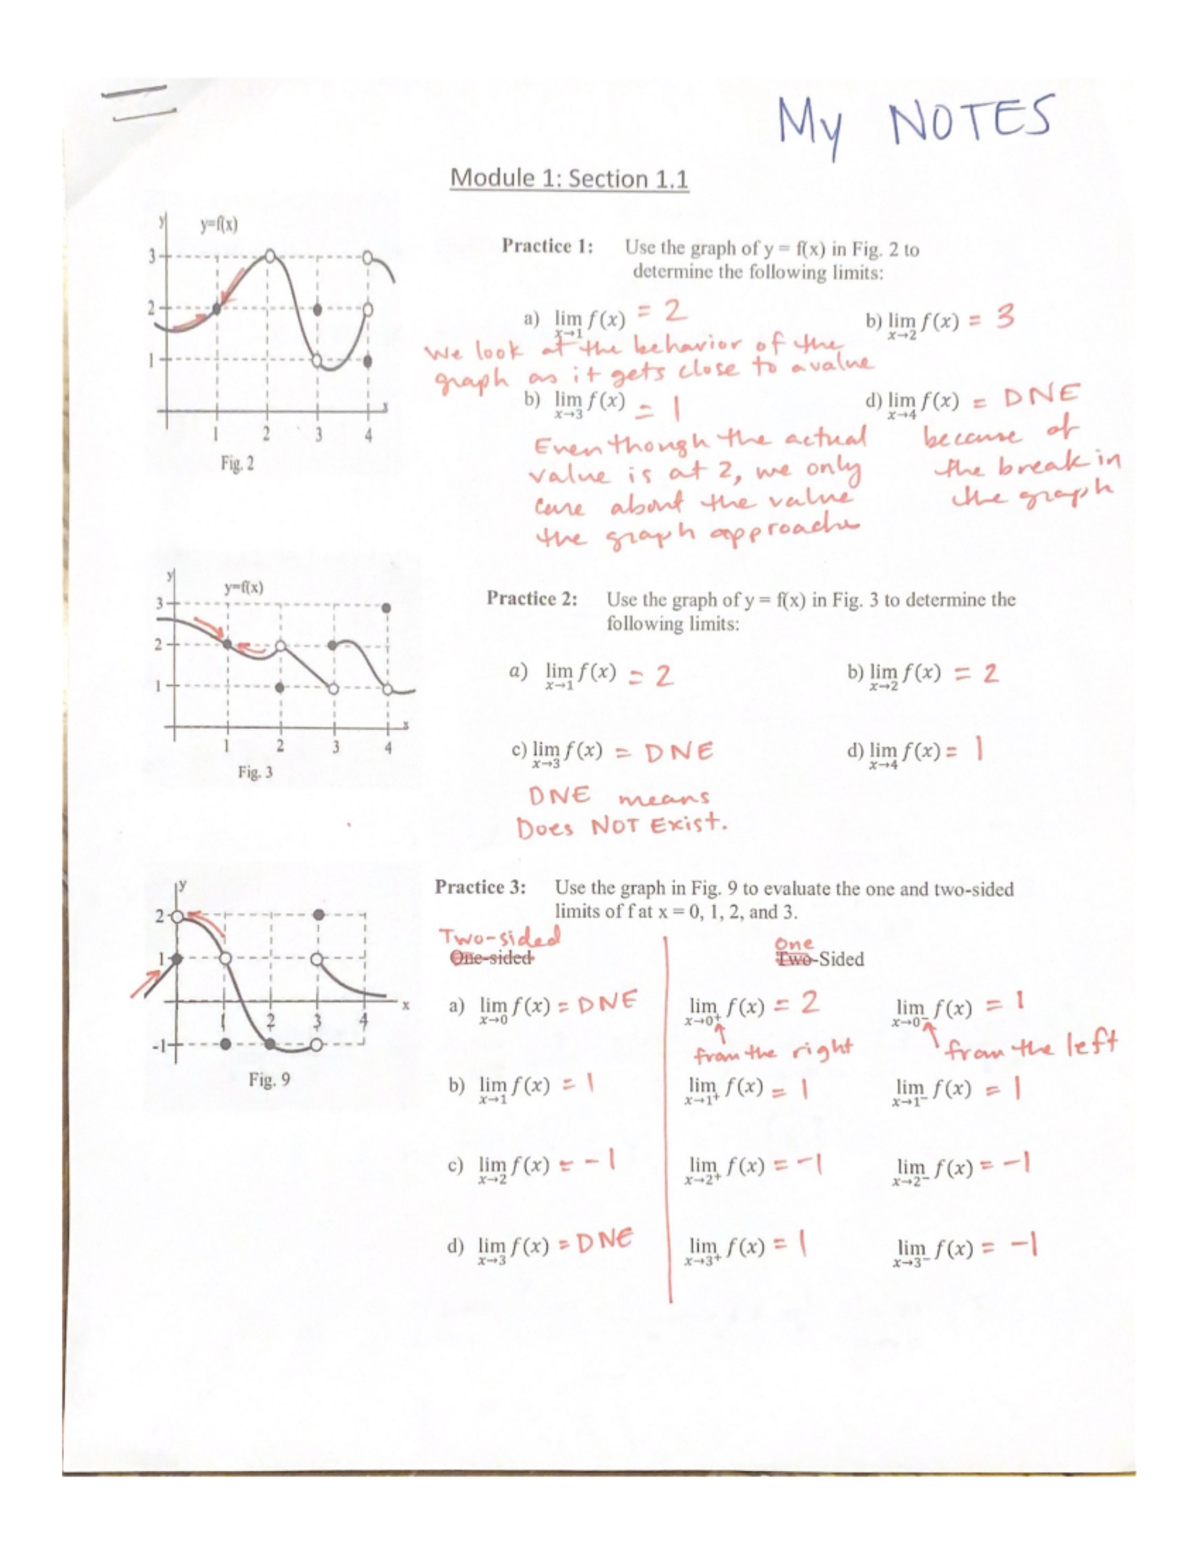 My NOTES
Module 1: Section 1.1
y
y=f(x)
3
2
1
x
1 2 3 4
Fig. 2
Practice 1: Use the graph of y = f(x) in Fig. 2 to
determine the following limits:
a) lim f(x) = 2
x→1
b) lim f(x) = 3
x→2
We look at the behavior of the
graph as it gets close to a value
b) lim f(x) = 1
x→3
d) lim f(x) = DNE
x→4
Even though the actual
value is at 2, we only
care about the value
the graph approaches
because of
the break in
the graph
y
y=f(x)
3
2
1
x
1 2 3 4
Fig. 3
Practice 2: Use the graph of y = f(x) in Fig. 3 to determine the
following limits:
a) lim f(x) = 2
x→1
b) lim f(x) = 2
x→2
c) lim f(x) = DNE
x→3
d) lim f(x) = 1
x→4
DNE means
Does NOT Exist.
y
2
1
x
1 2 3 4
-1
Fig. 9
Practice 3: Use the graph in Fig. 9 to evaluate the one and two-sided
limits of f at x = 0, 1, 2, and 3.
Two-sided
One-sided
One
Two-Sided
a) lim f(x) = DNE
x→0
lim f(x) = 2
x→0⁺
lim f(x) = 1
x→0⁻
from the right
from the left
b) lim f(x) = 1
x→1
lim f(x) = 1
x→1⁺
lim f(x) = 1
x→1⁻
c) lim f(x) = -1
x→2
lim f(x) = -1
x→2⁺
lim f(x) = -1
x→2⁻
d) lim f(x) = DNE
x→3
lim f(x) = 1
x→3⁺
lim f(x) = -1
x→3⁻